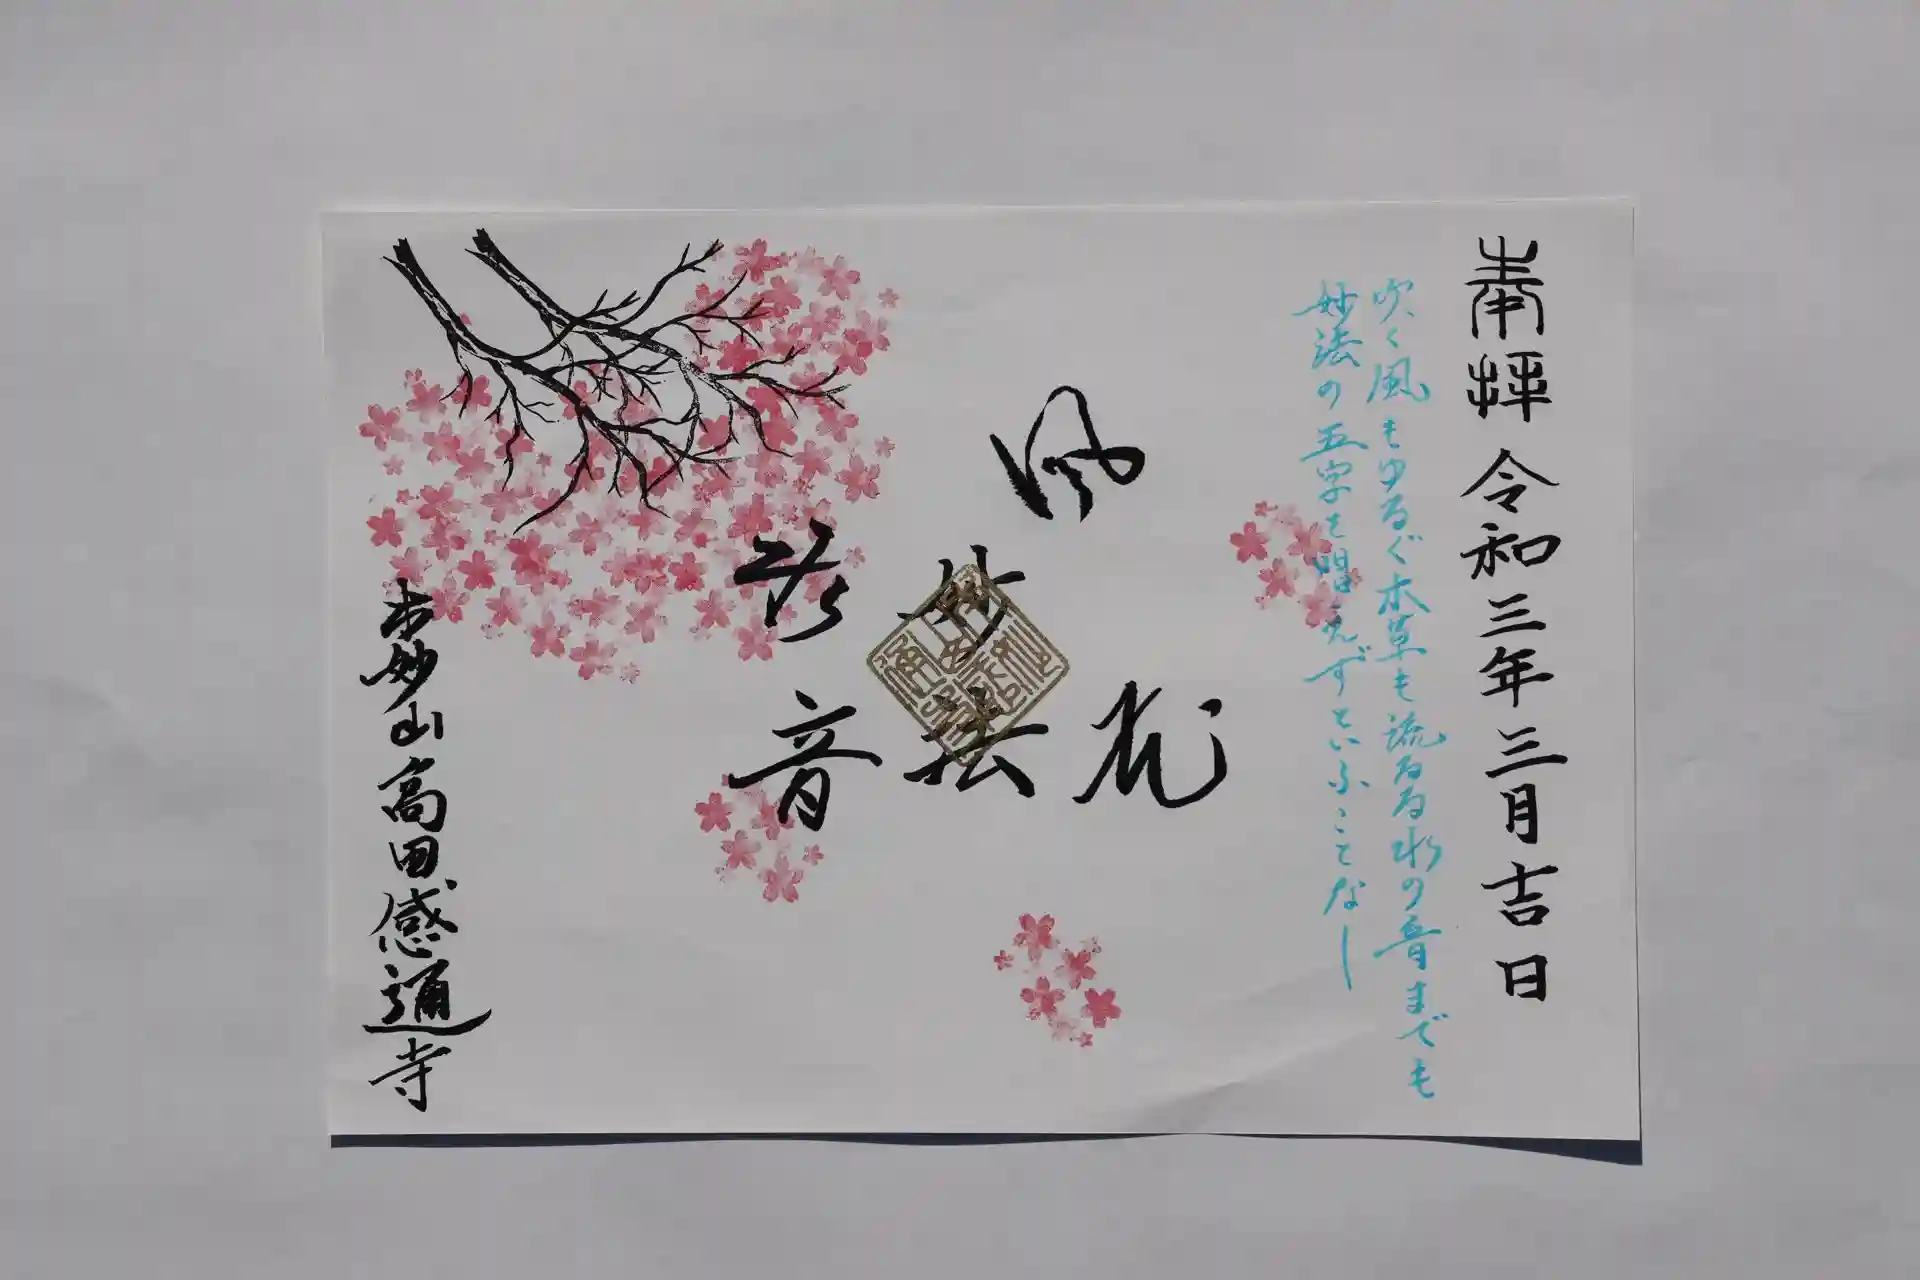 奉拝 令和三年三月吉日
吹く風もゆるぐ木草も流るる水の音までも
妙法の五字を唱えずといふことなし
風
花
音
本妙山高田感通寺